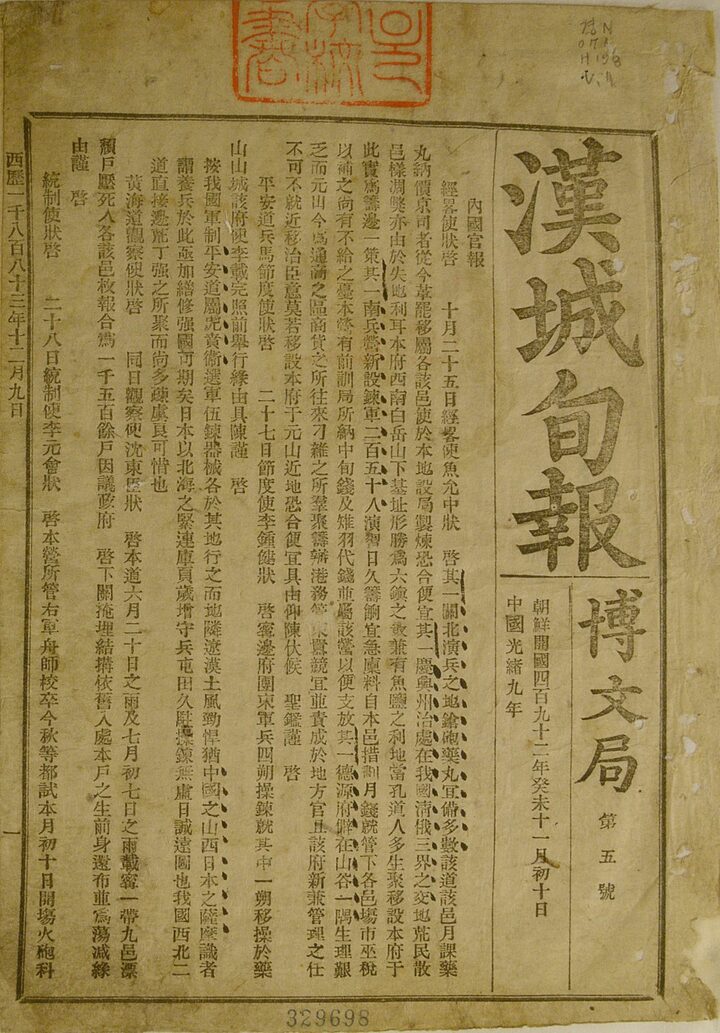 漢城旬報
博文局 第五號
朝鮮開國四百九十二年癸未十一月初十日
中國光緒九年
內國官報
經畧使狀啓 十月二十五日經畧使魚允中狀 啓其一關北演兵之地鎗砲藥丸宜備多數該道該邑月課藥
丸納價京司者從今革罷移屬各該邑使於本地設局製煉恐合便宜其一慶興州治處在我國淸俄三界之交地荒民散
邑樣凋弊亦由於失地利耳本府西南白岳山下基址形勝爲六鎭之最兼有魚鹽之利地當孔道人多生聚移設本府于
此實爲籌邊一策其一南兵營新設鍊軍二百五十八演習日久籌餉宜急廩料自本邑措劃月錢就管下各邑塲市巫稅
以補之尙有不給之憂本營有前訓局所納中旬錢及雉羽代錢並屬該營以便支放其一德源府僻在山谷一隅生理艱
乏而元山今爲通商之區商貨之所往來刁雜之所羣聚籌辦港務管束宜並責成於地方官且該府新兼管理之仕
不可不就近移治臣意莫若移設本府于元山近地恐合便宜具由仰陳伏候 聖鑑謹 啓
平安道兵馬節度使狀啓 二十七日節度使李鍾 狀 啓寗邊府團束軍兵四朔操鍊就其中一朔移操於藥
山山城該府使李載完照前舉行緣由具陳謹 啓
按我國軍制平安道屬 責衞選軍伍鍊器械各於其地行之而地隣遼漢土風勁悍猶中國之山西日本之薩摩識者
謂養兵於此亟加繕修强國可期矣日本以北海之緊連庫頁歲增守兵屯田久駐操鍊無虛日誠遠圖也我國西北二
道直接邊 丁强之所聚而尙多疎虞良可惜也
黃海道觀察使狀啓 同日觀察使沈東 狀 啓本道六月二十日之雨及七月初七日之雨載寗一帶九邑漂
頹戶壓死人各該邑枚報合爲一千五百餘戶因議政府 啓下關掩埋結搆依舊入處本戶之生前身還布並爲蕩减緣
由謹 啓
統制使狀啓 二十八日統制使李元會狀 啓本營所管右軍舟師校卒今秋等都試本月初十日開塲火砲科
西歷一千八百八十三年十二月九日
一
329698